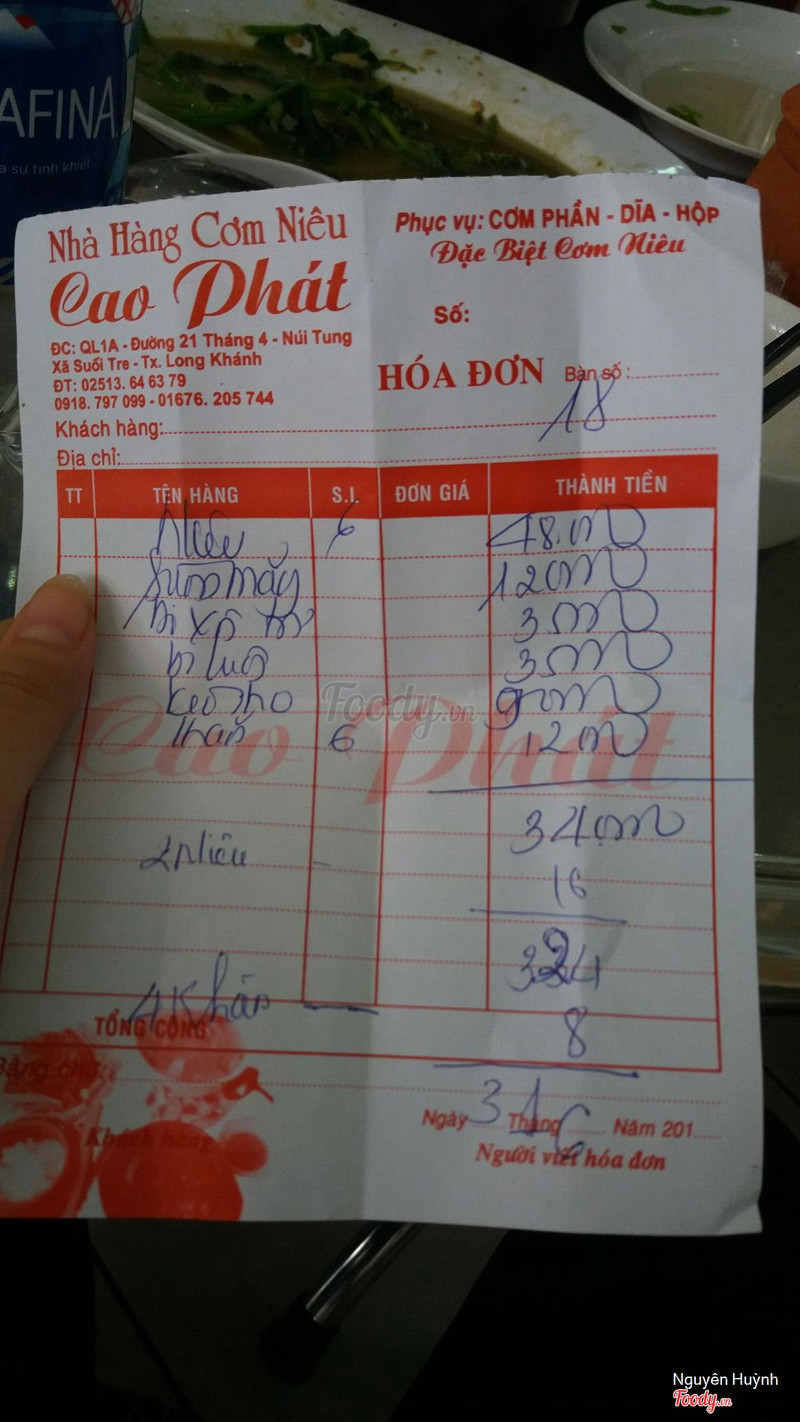 AFINA
a sự tinh khiết
Nhà Hàng Cơm Niêu
Cao Phát
ĐC: QL1A - Đường 21 Tháng 4 - Núi Tung
Xã Suối Tre - Tx. Long Khánh
ĐT: 02513. 64 63 79
0918. 797 099 - 01676. 205 744
Phục vụ: CƠM PHẦN - DĨA - HỘP
Đặc Biệt Cơm Niêu
Số:
HÓA ĐƠN Bàn số:
18
Khách hàng:
Địa chỉ:
TT TÊN HÀNG S.L ĐƠN GIÁ THÀNH TIỀN
Niêu 6 48.000
120
kho
khăn 6 12
Foody.vn
Cao Phát
34
2 Niêu 16
324
4 Khăn 8
TỔNG CỘNG
Bằng chữ:
316
Ngày Tháng Năm 201
Khách hàng
Người viết hóa đơn
Nguyên Huỳnh
Foody.vn